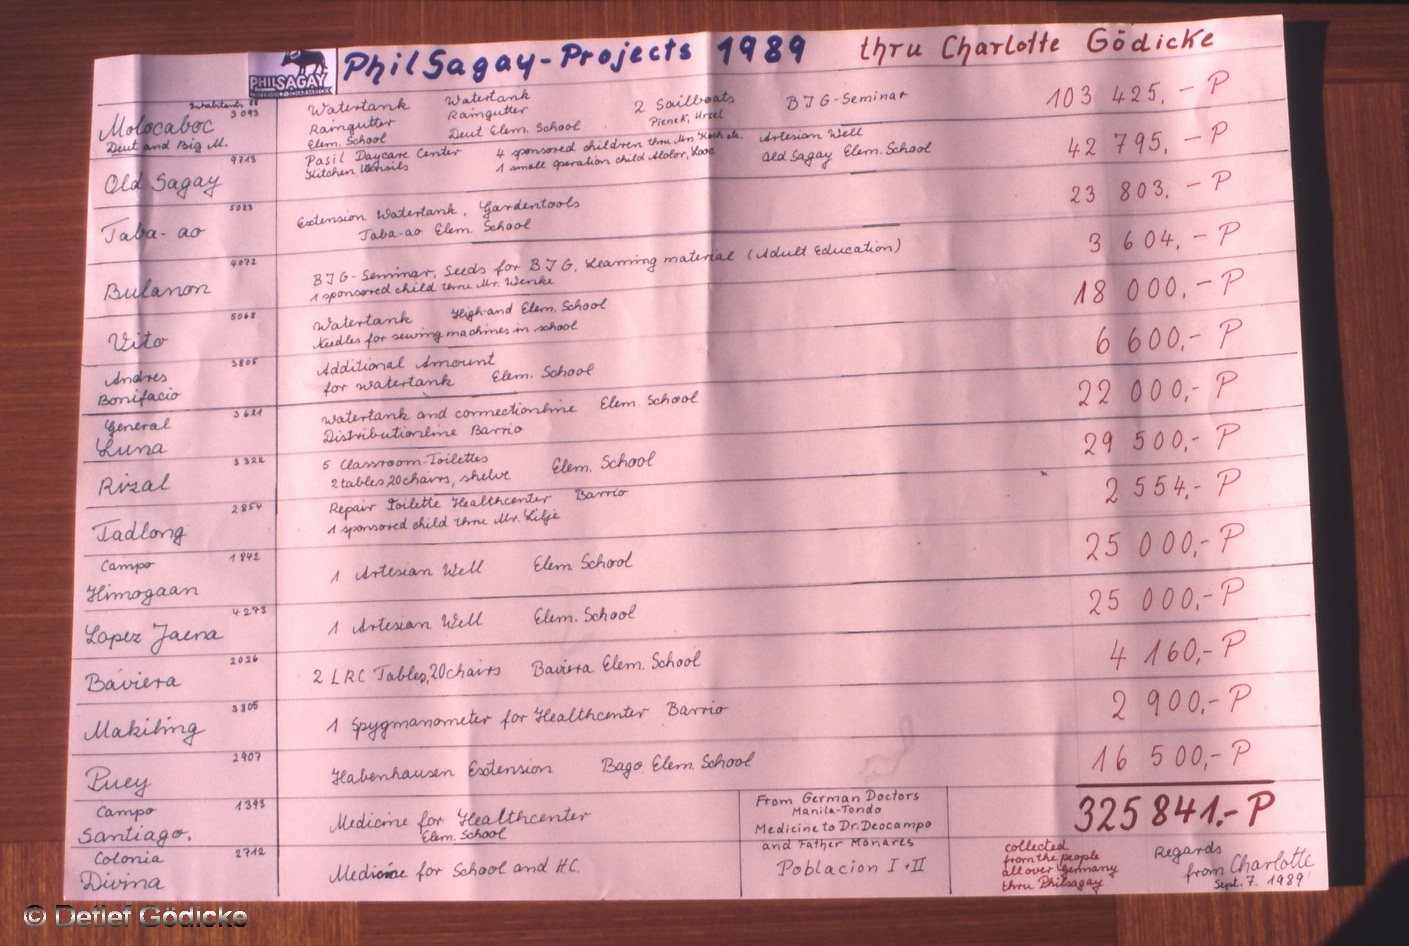 PHILSAGAY
PhilSagay-Projects 1989 thru Charlotte Gödicke
Inhabitants
3093
Molocaboc
Deut and Big M.
Watertank
Raingutter
Elem. School
Watertank
Raingutter
Deut Elem. School
2 Sailboats
BIG-Seminar
103 425,- P
9713
Old Sagay
Pasil Daycare Center
Kitchen Utensils
4 sponsored children thru Mr. Koch etc.
1 small operation child
Artesian Well
Old Sagay Elem. School
42 795,- P
5023
Taba-ao
Extension Watertank, Gardentools
Taba-ao Elem. School
23 803,- P
4072
Bulanon
BIG-Seminar, Seeds for BIG, Learning material (Adult Education)
1 sponsored child thru Mr. Wenke
3 604,- P
5068
Vito
Watertank High-and Elem. School
Needles for sewing machines in school
18 000,- P
3805
Andres
Bonifacio
Additional Amount
for watertank Elem. School
6 600,- P
3621
General
Luna
Watertank and connectionline Elem. School
Distributionline Barrio
22 000,- P
3322
Rizal
5 Classroom-Toilettes
2 tables, 20 chairs, shelve Elem. School
29 500,- P
2854
Tadlong
Repair Toilette Healthcenter Barrio
1 sponsored child thru Mr. Lilje
2 554,- P
1842
Campo
Himogaan
1 Artesian Well Elem. School
25 000,- P
4273
Lopez Jaena
1 Artesian Well Elem. School
25 000,- P
2026
Baviera
2 LRC Tables, 20 chairs Baviera Elem. School
4 160,- P
3805
Makiling
1 Spygmanometer for Healthcenter Barrio
2 900,- P
2907
Puey
Habenhausen Extension Bago Elem. School
16 500,- P
1393
Campo
Santiago.
Medicine for Healthcenter
Elem. School
From German Doctors
Manila-Tondo
Medicine to Dr. Deocampo
and Father Monares
325 841.- P
2712
Colonia
Divina
Medicine for School and H.C.
Poblacion I + II
collected
from the people
all over Germany
thru Philsagay
Regards
from Charlotte
Sept. 7. 1989
© Detlef Gödicke